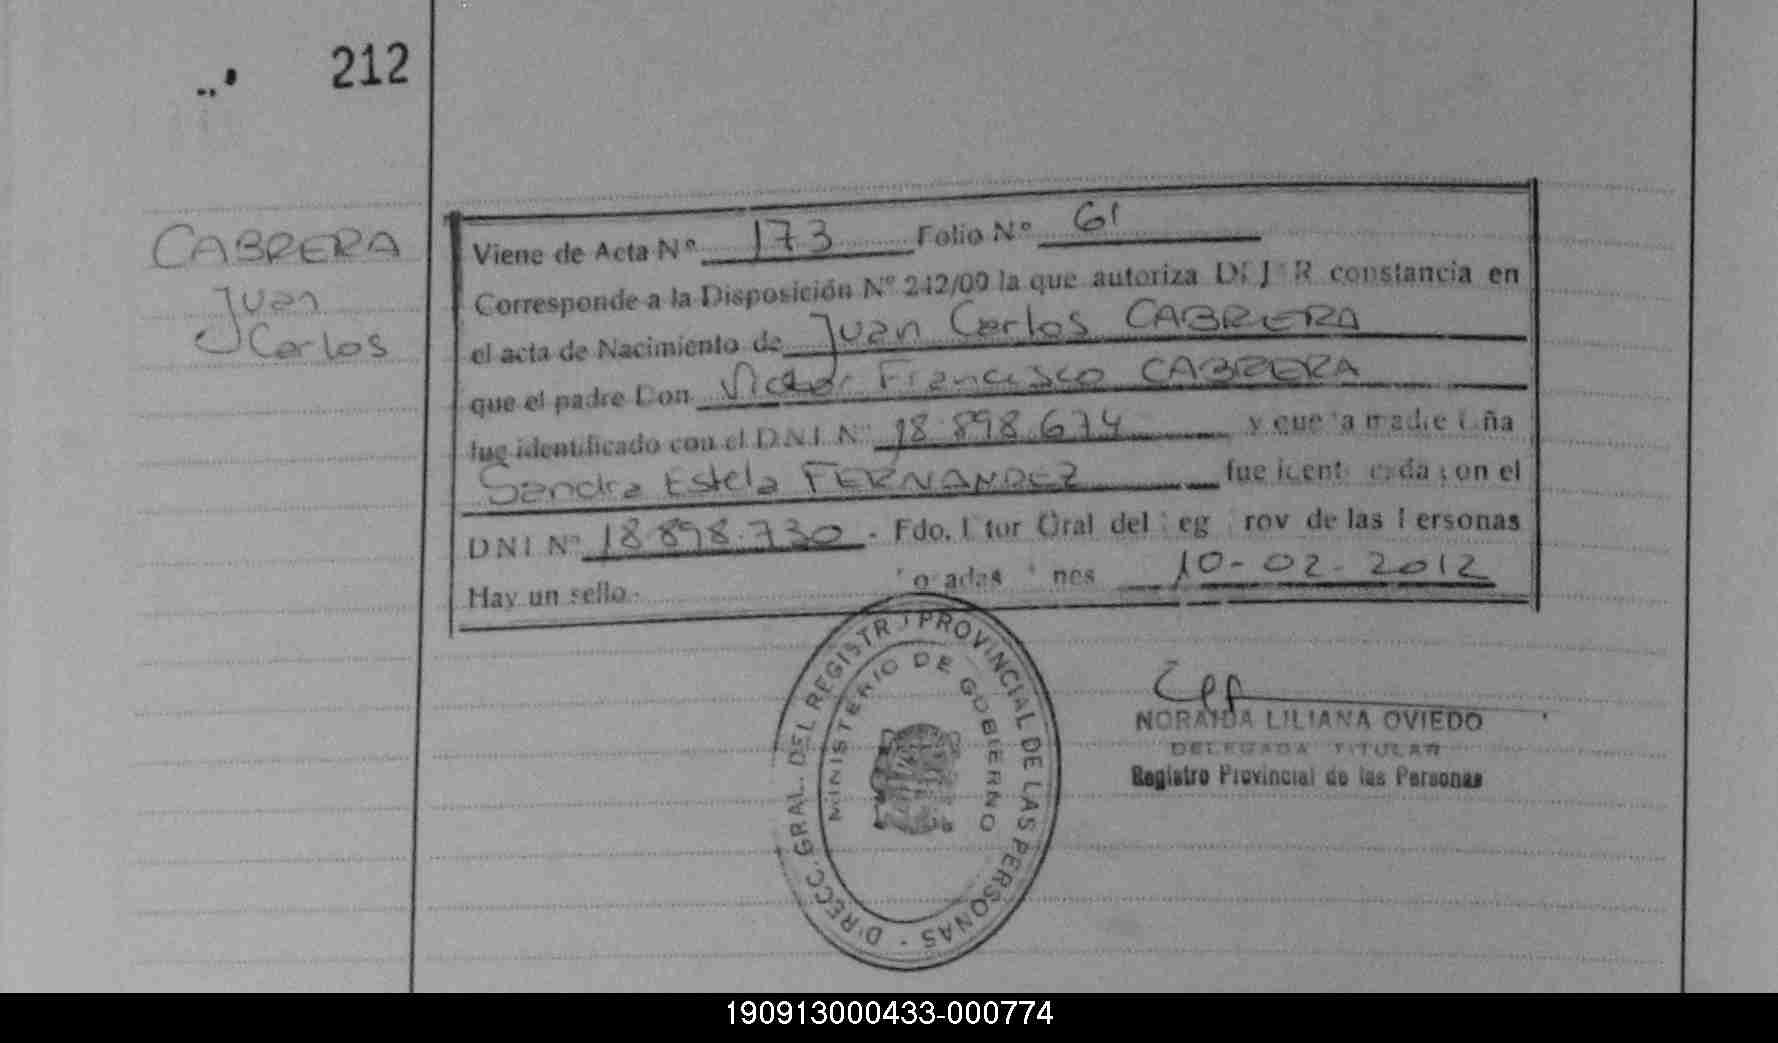 212
CABRERA
Juan
Carlos
Viene de Acta Nº 173 Folio Nº 61
Corresponde a la Disposición Nº 242/00 la que autoriza DEJ R constancia en
el acta de Nacimiento de Juan Carlos CABRERA
que el padre Don Victor Francisco CABRERA
fue identificado con el D.N.I. Nº 18.898.674 y que la madre
Sandra Estela FERNANDEZ fue con el
DNI Nº 18 898.730 . Fdo. Gral del de las Personas
Hay un sello. 10-02-2012
DIRECC. GRAL. DEL REGISTRO PROVINCIAL DE LAS PERSONAS -
MINISTERIO DE GOBIERNO
NORAIDA LILIANA OVIEDO
DELEGADA TITULAR
Registro Provincial de las Personas
190913000433-000774